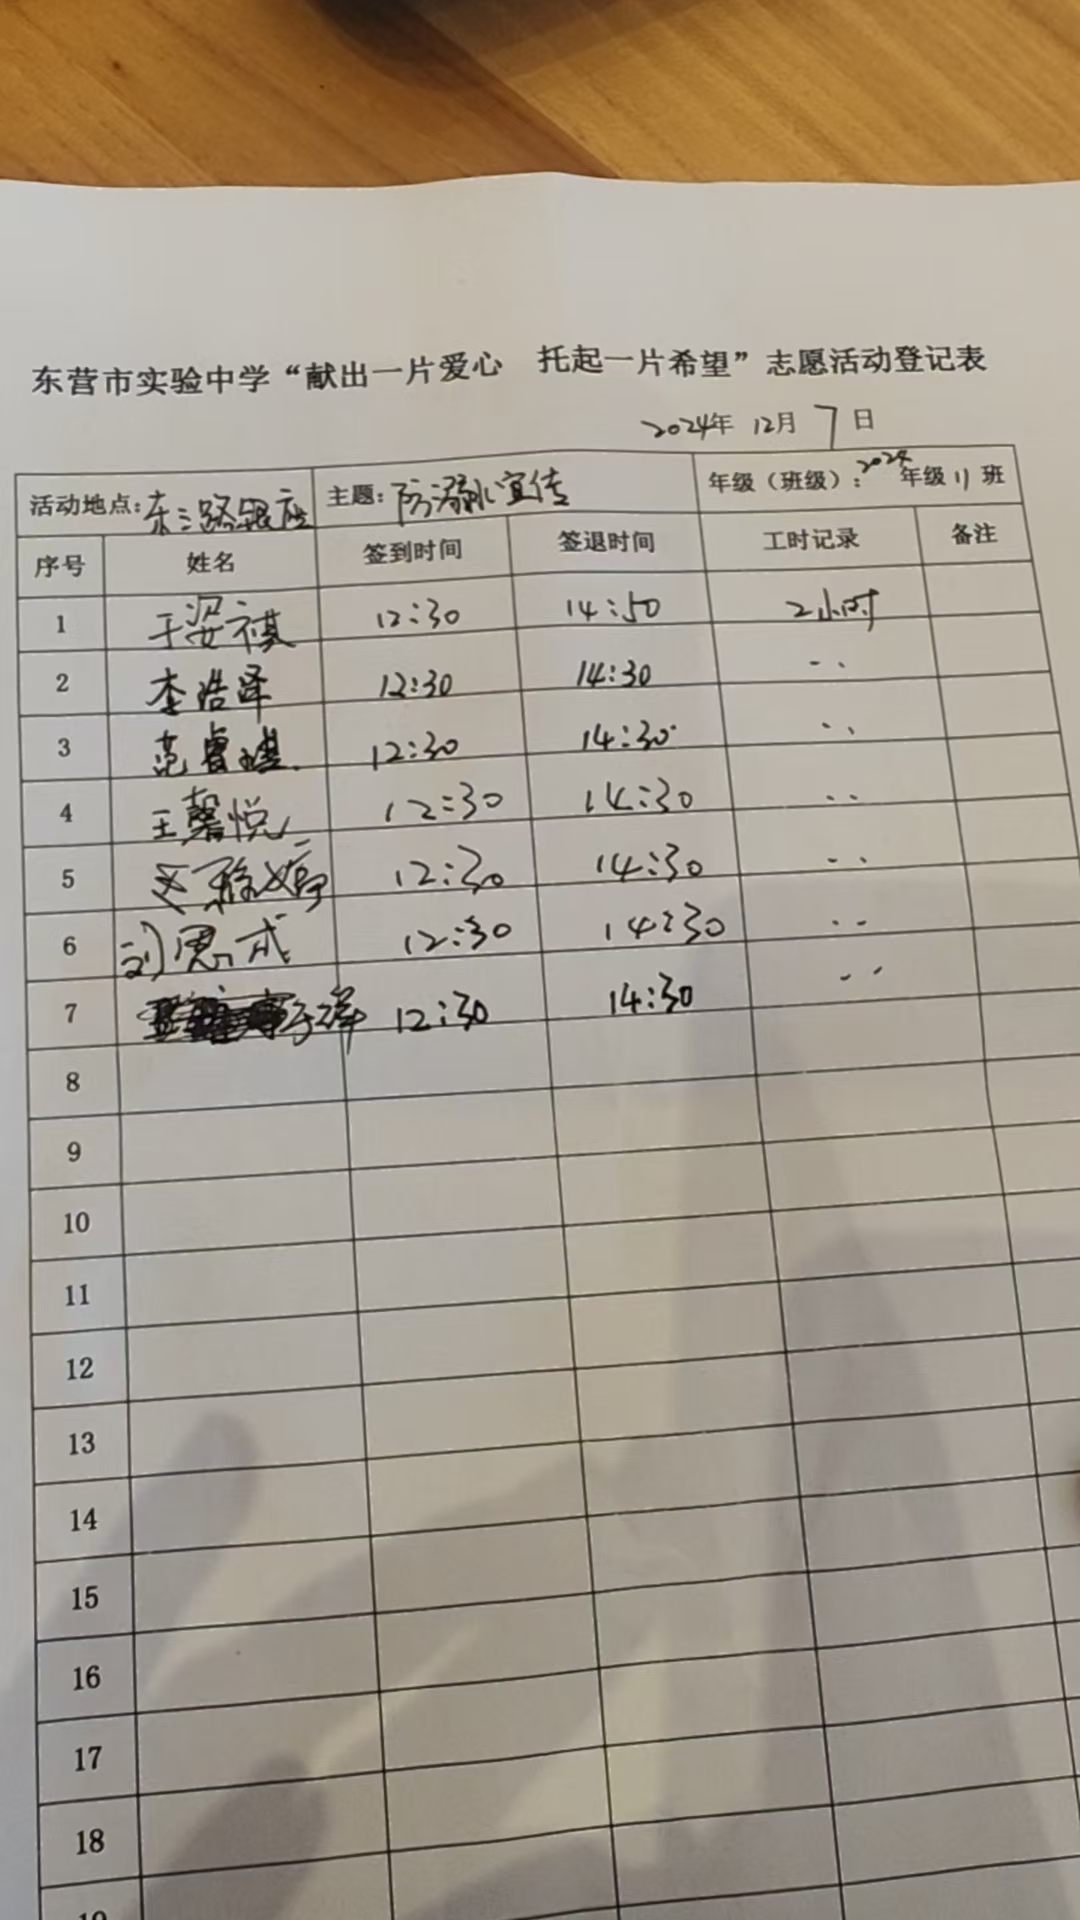 东营市实验中学“献出一片爱心 托起一片希望”志愿活动登记表
2024年 12月 7日
活动地点：东三路银座 主题：防溺水宣传 年级（班级）：2024年级11班
序号 姓名 签到时间 签退时间 工时记录 备注
1 于姿祺 12:30 14:50 2小时
2 李浩泽 12:30 14:30 ··
3 范睿琪 12:30 14:30 ··
4 王馨悦 12:30 14:30 ··
5 12:30 14:30 ··
6 刘思成 12:30 14:30 ··
7 12:30 14:30 ··
8
9
10
11
12
13
14
15
16
17
18
19